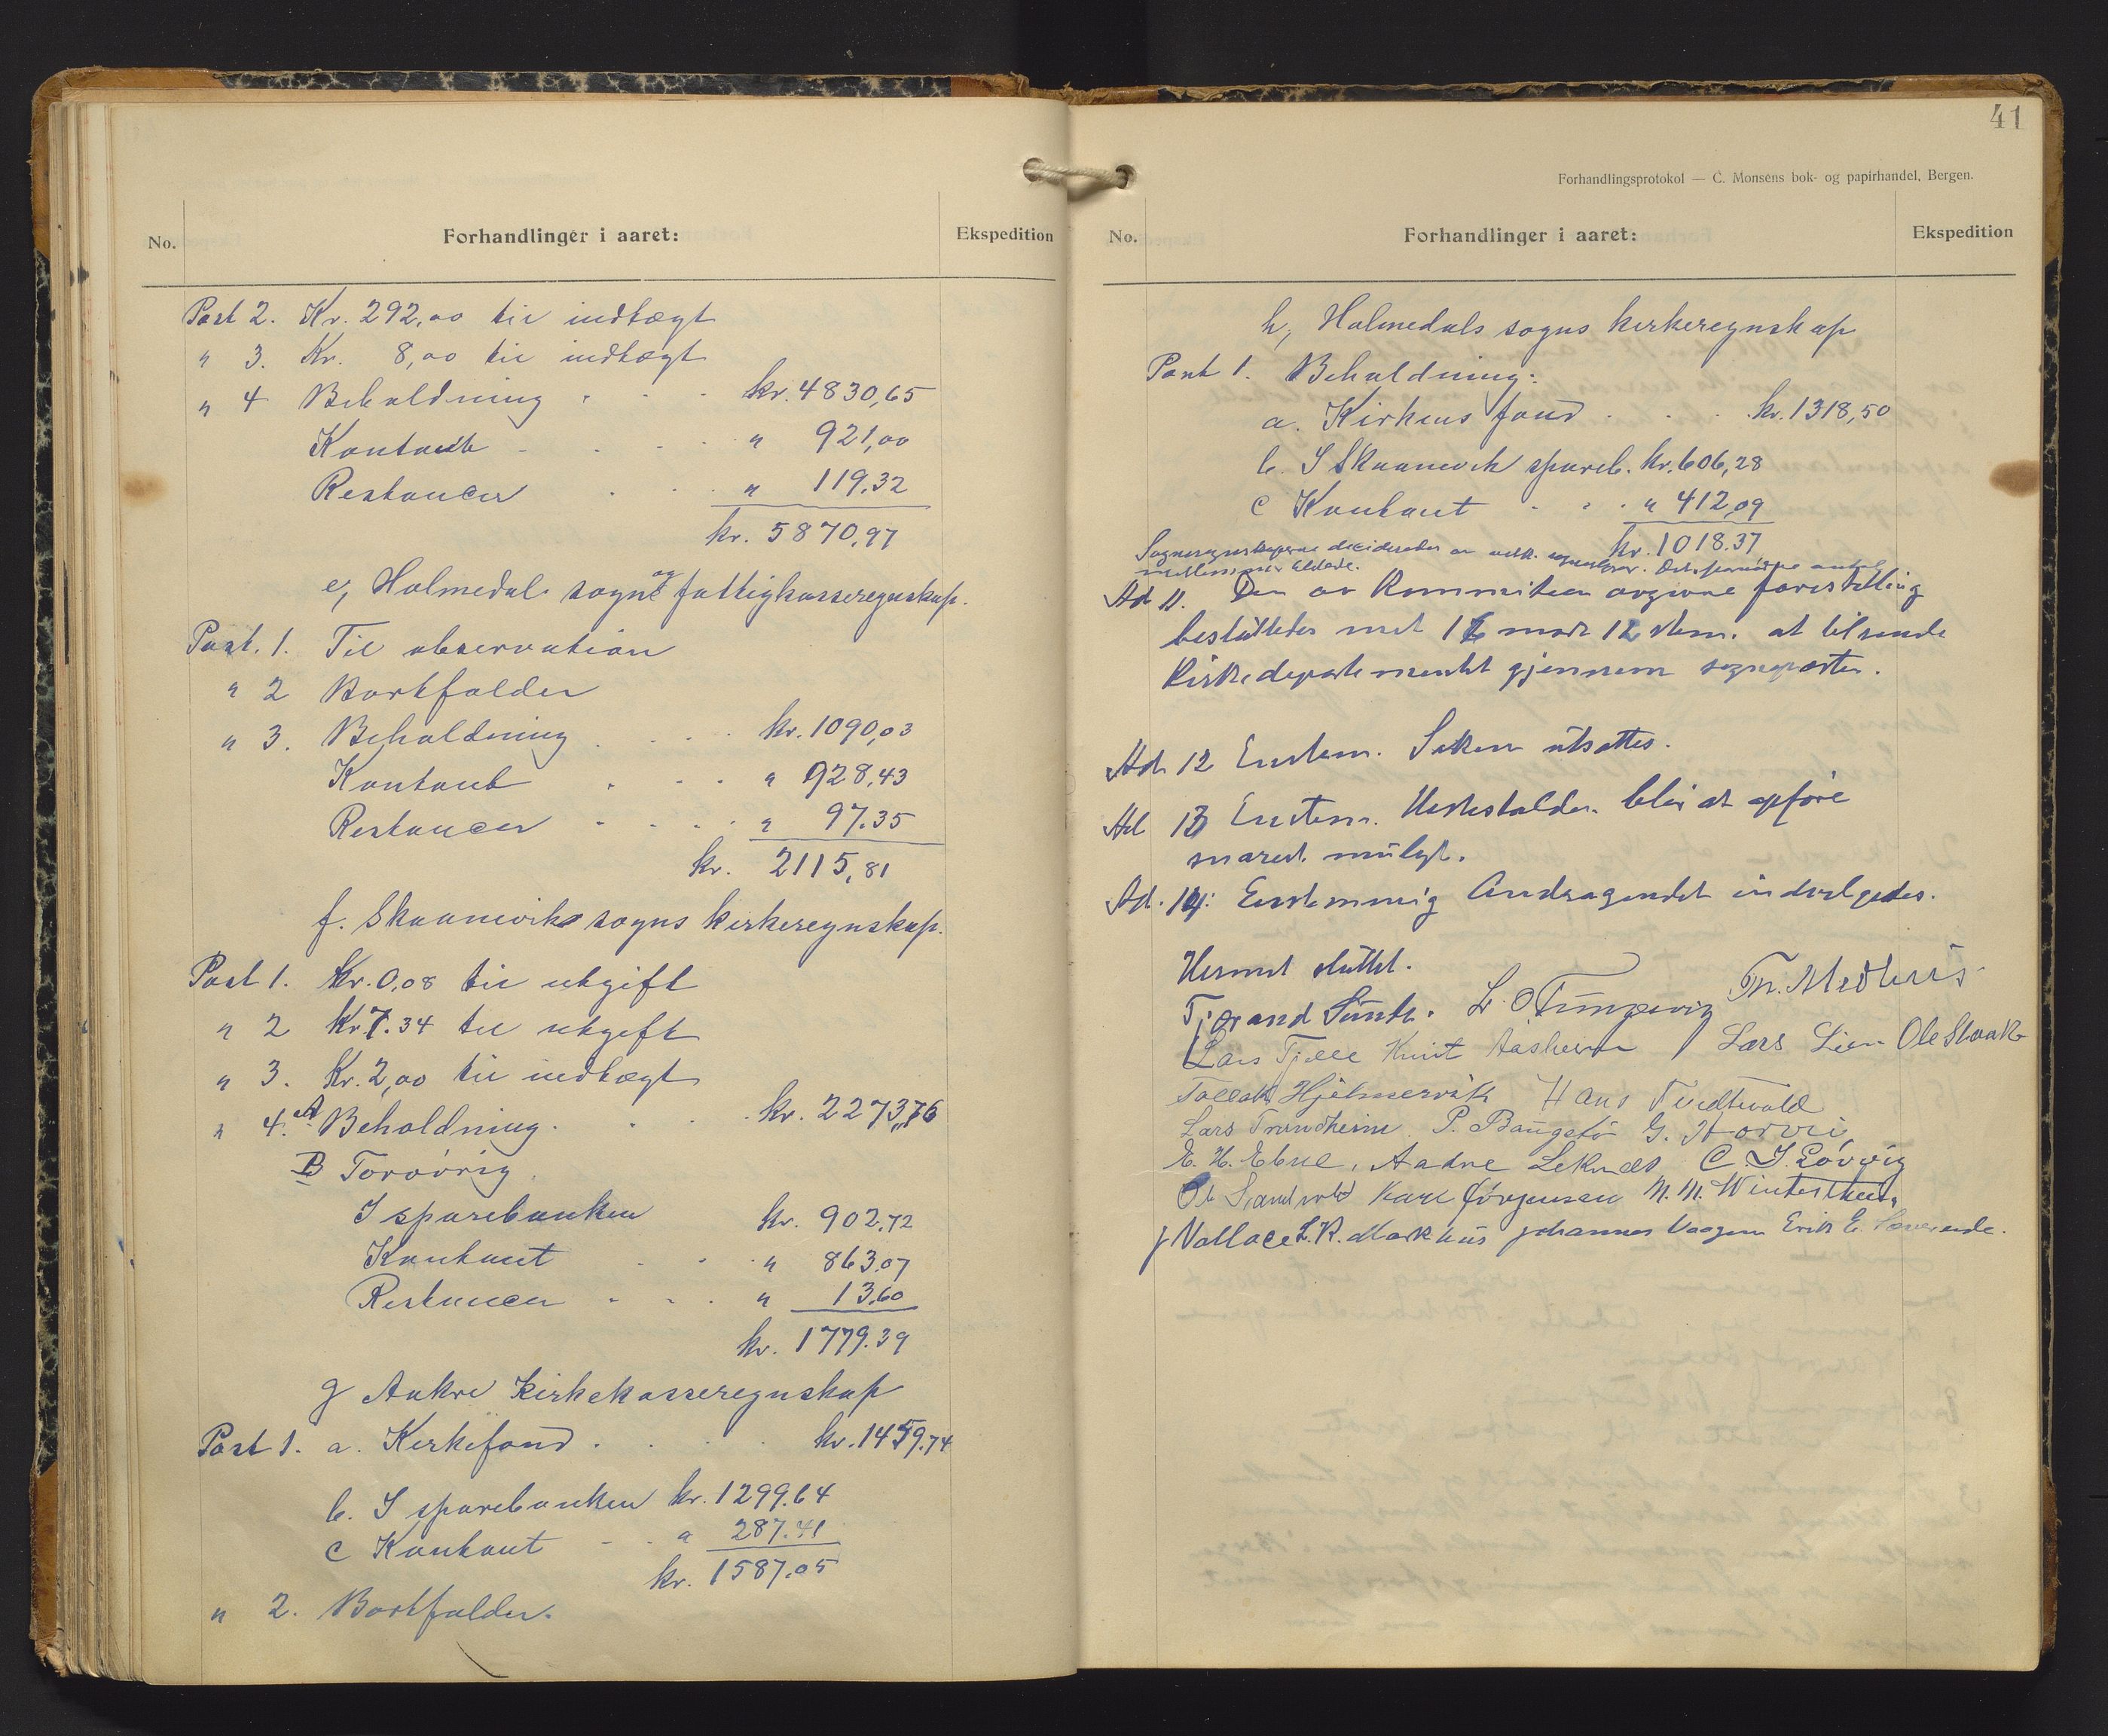 No.
Forhandlinger i aaret:
Ekspedition
Post 2. Kr. 292,00 til indtægt
" 3. Kr. 8,00 til indtægt
" 4 Beholdning . . . kr. 4830,65
Kontant - . . . " 921,00
Restancer . . . " 119.32
kr. 5870,97
e, Holmedal sogns og fattigkasseregnskap.
Post. 1. Til observation
" 2 Bortfalder
" 3. Beholdning . . . . kr. 1090,03
Kontant . . . " 928,43
Restancer . . . . " 97.35
kr. 2115,81
f. Skaaneviks sogns kirkeregnskap.
Post 1. Kr. 0,08 til utgift
" 2 Kr 7.34 til utgift
" 3. Kr. 2,00 til indtægt
" 4. A Beholdning . . . kr. 2273,76
B Forøvrig
I sparebanken kr. 902,72
Kontant . . . " 863.07
Restancer . . . " 13,60
kr. 1779.39
g Aakre Kirkekasseregnskap
Post 1. a. Kirkefond . . . kr. 1459.74
b. I sparebanken kr. 1299.64
c Kontant - . " 287.41
kr. 1587.05
" 2. Bortfalder.
41
Forhandlingsprotokol — C. Monsens bok- og papirhandel, Bergen.
No.
Forhandlinger i aaret:
Ekspedition
h, Holmedals sogns kirkeregnskap
Post 1. Beholdning:
a. Kirkens fond . . . kr. 1318,50
b. I Skaanevik spareb. kr. 606,28
c Kontant . . . " 412,09
kr. 1018.37
Sogneregnskaperne decideredes av
medlemmer
Ad 11. Den av Kommiteen avgivne forestilling
besluttedes med 12 mot 12 stem. at tilsende
Kirkedepartementet gjennem sognepresten.
Ad 12 Enstem. Saken utsattes.
Ad 13 Enstem. Hestestalden blir at opføre
snarest muligt.
Ad. 14: Enstemmig Andragendet indvilgedes.
Hermed sluttet.
Tjerand Sunde. L. O. Tungesvig Th. Medhus
Lars Fjelle Knut Aasheim Lars Lien Ole Skaale
Tollak Hjelmervik Hans Tvedtvold
Lars Trondheim P. Baugstø G. Norvei
E. H. Ebne, Aadne Leknes C. J. Løvvig
Ol Sandvold Karl Jørgensen N. M. Winterthun
J Vallace L. K. Markhus Johannes Vaagen Erik E.